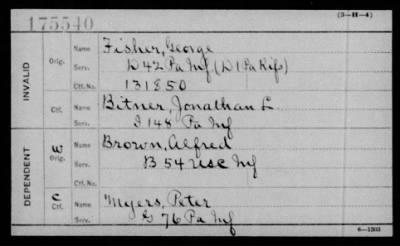 175540
(3—H—4)
INVALID
Orig.
Name Fisher, George
Serv. D 42 Pa Inf (D 1 Pa Rifs)
Ctf. No. 131850
Ctf.
Name Bitner, Jonathan L.
Serv. I 148 Pa Inf
DEPENDENT
W
Orig.
Name Brown, Alfred
Serv. B 54 USC Inf
Ctf. No.
C
Ctf.
Name Myers, Peter
Serv. G 76 Pa Inf
6—1203